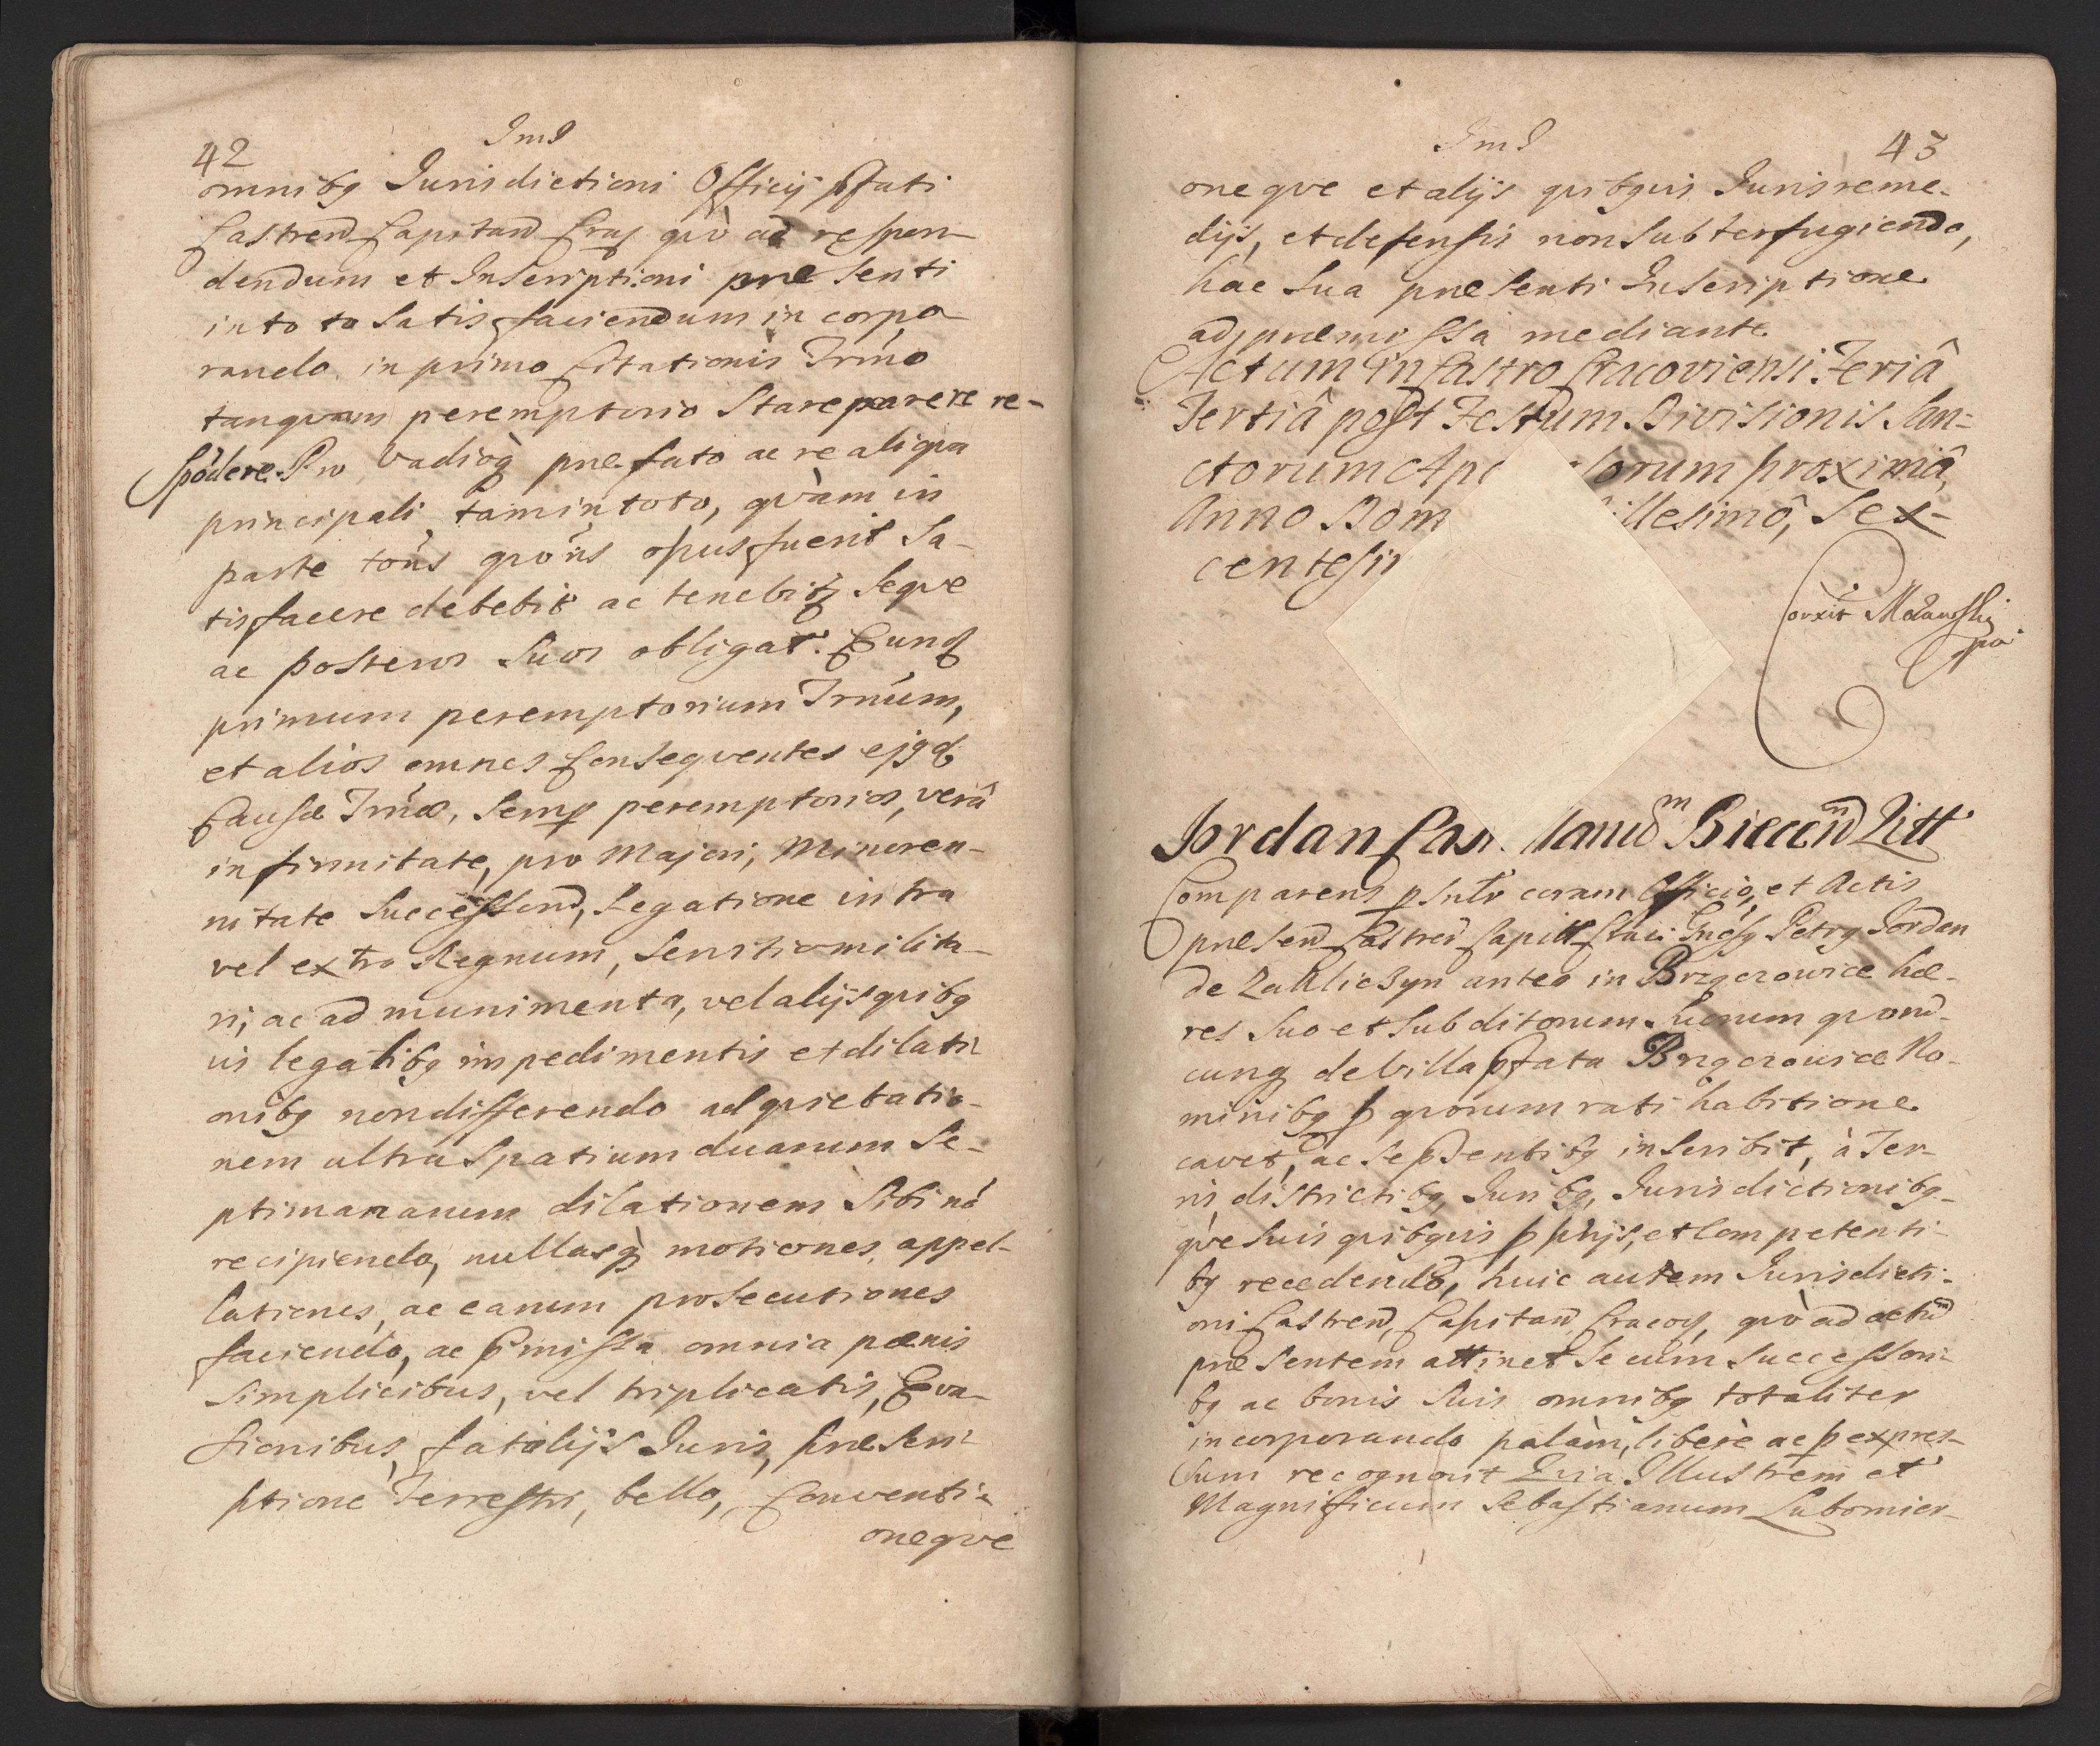 42
omnibq Jurisdictioni Officij pfati
Castren Capitan Crac quò ad respon-
dendum et Inscriptioni præsenti
in toto satisfaciendum incorpo-
rando in primo Citationis Trmo
tanquam peremptorio stare parere re-
spōdere Pro vadioq præfato ac re aliqua
principali tam in toto, quàm in
parte totiês quotiês opus fuerit sa-
tisfacere debebit ac tenebitur seque
ac posteros suos obligat. Eunq
primum peremptorium Trnum,
et alios omnes Consequentes ejqd
Causæ Trnos, semp peremptorios, verâ
infirmitate, pro Majori, Minoren-
nitate Successorū, Legatione intra
vel extra Regnum, Servitio milita-
ri, ac ad munimenta, vel alijs quibq
vis legalibq impedimentis et dilati-
onibq non differendo ad quietatio-
nem ultra spatium duarum Se-
ptimanarum dilationem sibi nō
recipiendo, nullasq motiones appel-
lationes, ac earum prosecutiones
faciendo, ac pmissa omnia pœnis
simplicibus, vel triplicatis, Eva-
sionibus, fatalijs Juris, præscri-
ptione Terrestri, bello, Conventi-
oneqve
43
oneqve et alijs quibqvis Juris reme-
dijs, et defensis non subterfugiendo,
hac sua præsenti Inscriptione
ad præmissa mediante.
Actum in Castro Cracoviensi Feriâ
Tertiâ post Festum Divisionis San-
ctorum Apo orum proximâ,
Anno Dom illesimô, Sex-
centesi
Jordan Cas Biecen Litt
Comparens psnlr coram Officio, et Actis
præsen Castren Capit Petrq Jordan
de Zakliczyn antea in Brzączowice hæ-
res suo et subditorum suorum quorū-
cunq de villa pfata Brzączowice No-
minibq p quorum rati habitione
cavet, ac se psentibq inscribit, à Ter-
ris, districtibq, Juribq, Jurisdictionibq-
qve suis quibqvis pprijs, et Competenti-
bq recedendo, huic autem Jurisdicti-
oni Castren, Capitan Cracov, quò ad actū
præsentem attinet se cum successori-
bq ac bonis suis omnibq totaliter
incorporando palàm, liberè ac p expres-
sum recognovit Quia Illustrem et
Magnificum Sebastianum Lubomier-